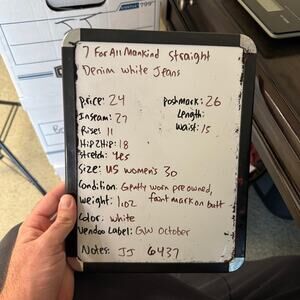 7 For All Mankind Straight
Denim White Jeans
Price: 24 Poshmark: 26
Inseam: 27 Length:
Rise: 11 Waist: 15
Hip2Hip: 18
Stretch: Yes
Size: US Women's 30
Condition: Gently worn pre owned,
faint mark on butt
Weight: 1.02
Color: White
Vendoo Label: GW October
Notes: JJ 6437